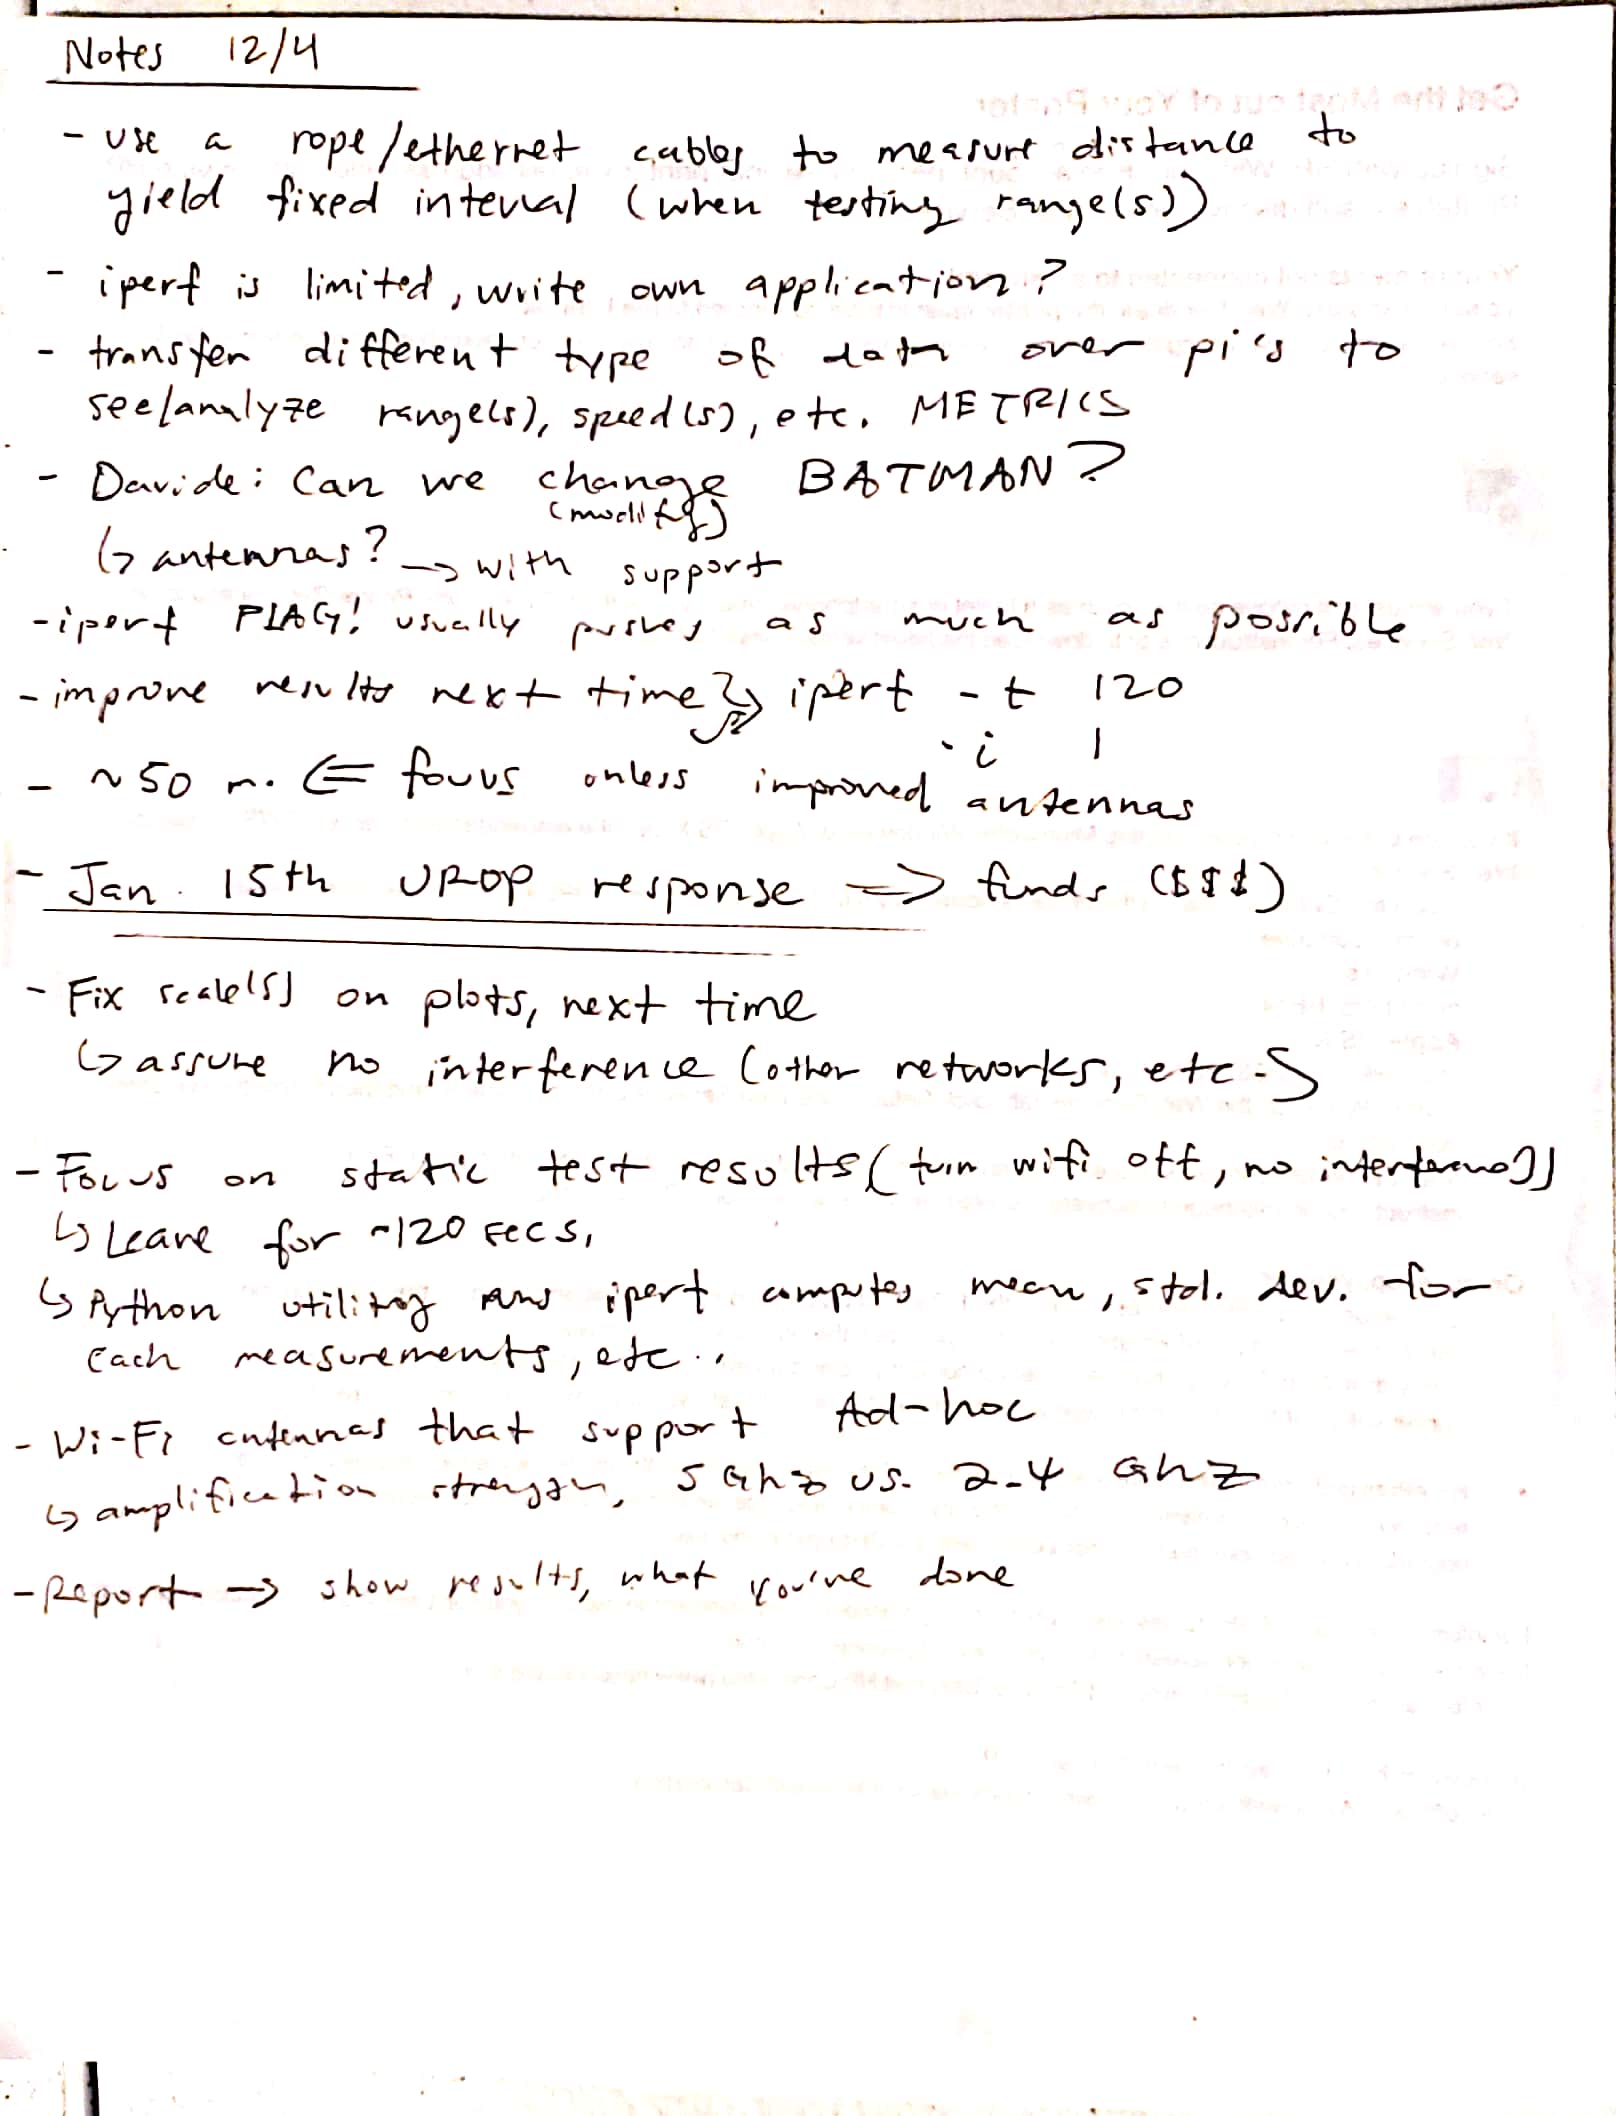 Notes 12/4
- use a rope/ethernet cables to measure distance to
yield fixed interval (when testing range(s))
- iperf is limited, write own application?
- transfer different type of data over pi's to
see/analyze range(s), speed(s), etc. METRICS
- Davide: Can we change BATMAN?
(modify)
↳ antennas? → with support
- iperf FLAG! usually pushes as much as possible
- improve results next time ⇒ iperf -t 120
-i 1
- ~50 m. ⇐ focus unless improved antennas
- Jan. 15th UROP response => funds ($$$)
- Fix scale(s) on plots, next time
↳ assure no interference (other networks, etc.)
- Focus on static test results (turn wifi off, no interference))
↳ Leave for ~120 secs,
↳ Python utility runs iperf computes mean, std. dev. for
each measurements, etc..
- Wi-Fi antennas that support Ad-hoc
↳ amplification strength, 5 Ghz vs. 2.4 Ghz
- Report → show results, what you've done
Get the Most out of Your Printer